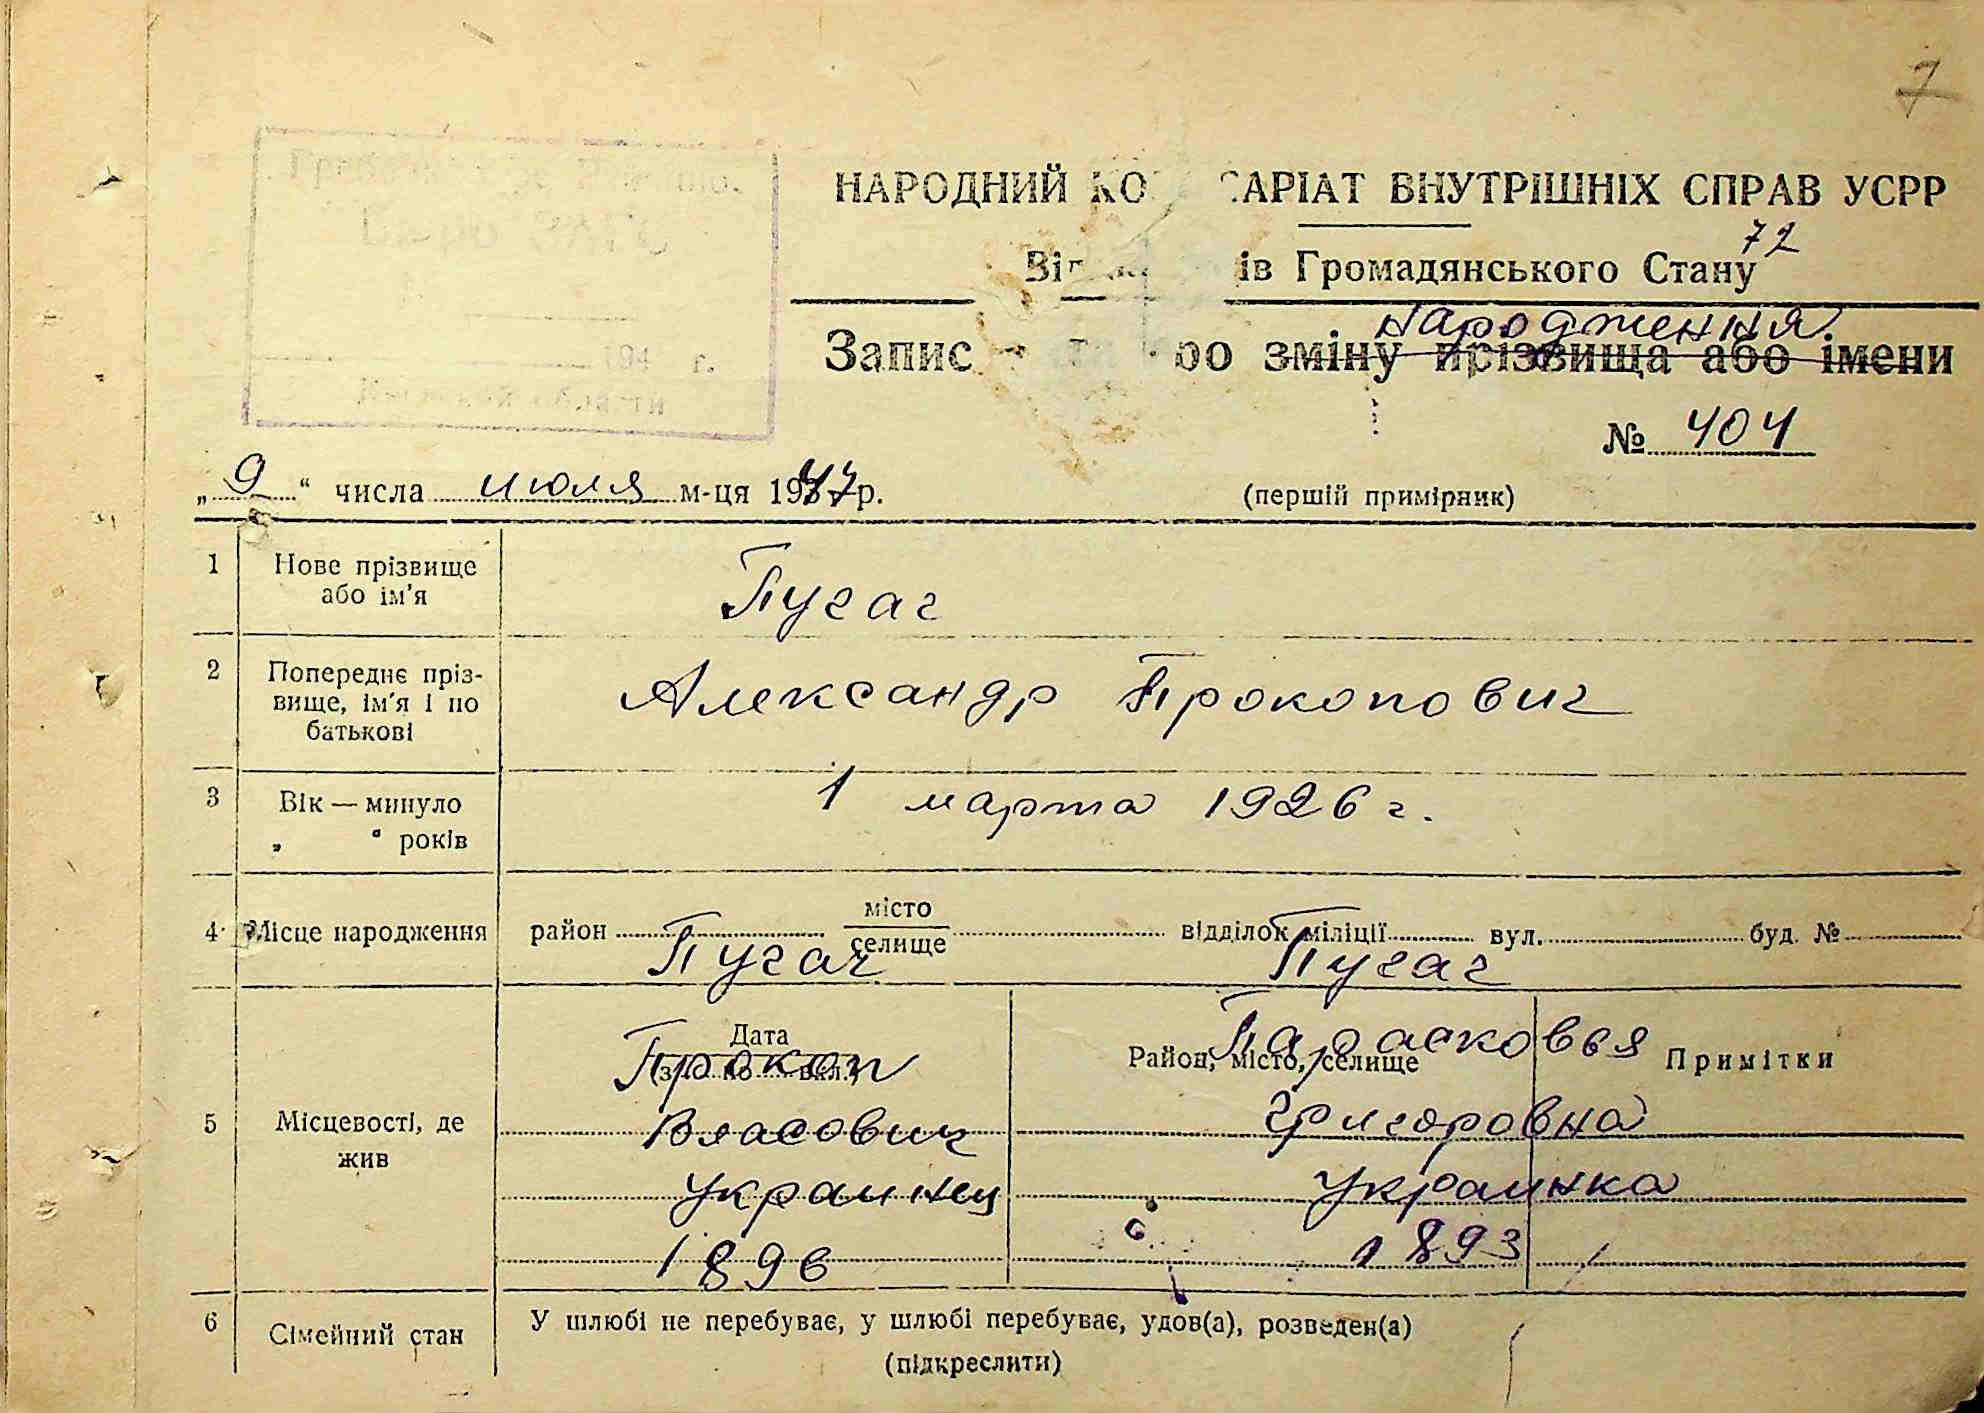 7
НАРОДНИЙ КО САРІАТ ВНУТРІШНІХ СПРАВ УСРР
72
ів Громадянського Стану
народження
Запис ро зміну прізвища або імени
№ 404
„ 9 “ числа июля м-ця 1947 р.
(перший примірник)
1 Нове прізвище або ім'я
Пугач
2 Попереднє пріз-
вище, ім'я і по
батькові
Александр Прокопович
3 Вік — минуло
„ “ років
1 марта 1926 г.
4 Місце народження район місто селище відділок міліції вул. буд. №
Пугач Пугач
5 Місцевості, де
жив
Дата
Район, місто, селище
Примітки
Прокоп Парасковья
Власович Григоровна
украинец украинка
1896 1893
6 Сімейний стан У шлюбі не перебуває, у шлюбі перебуває, удов(а), розведен(а)
(підкреслити)